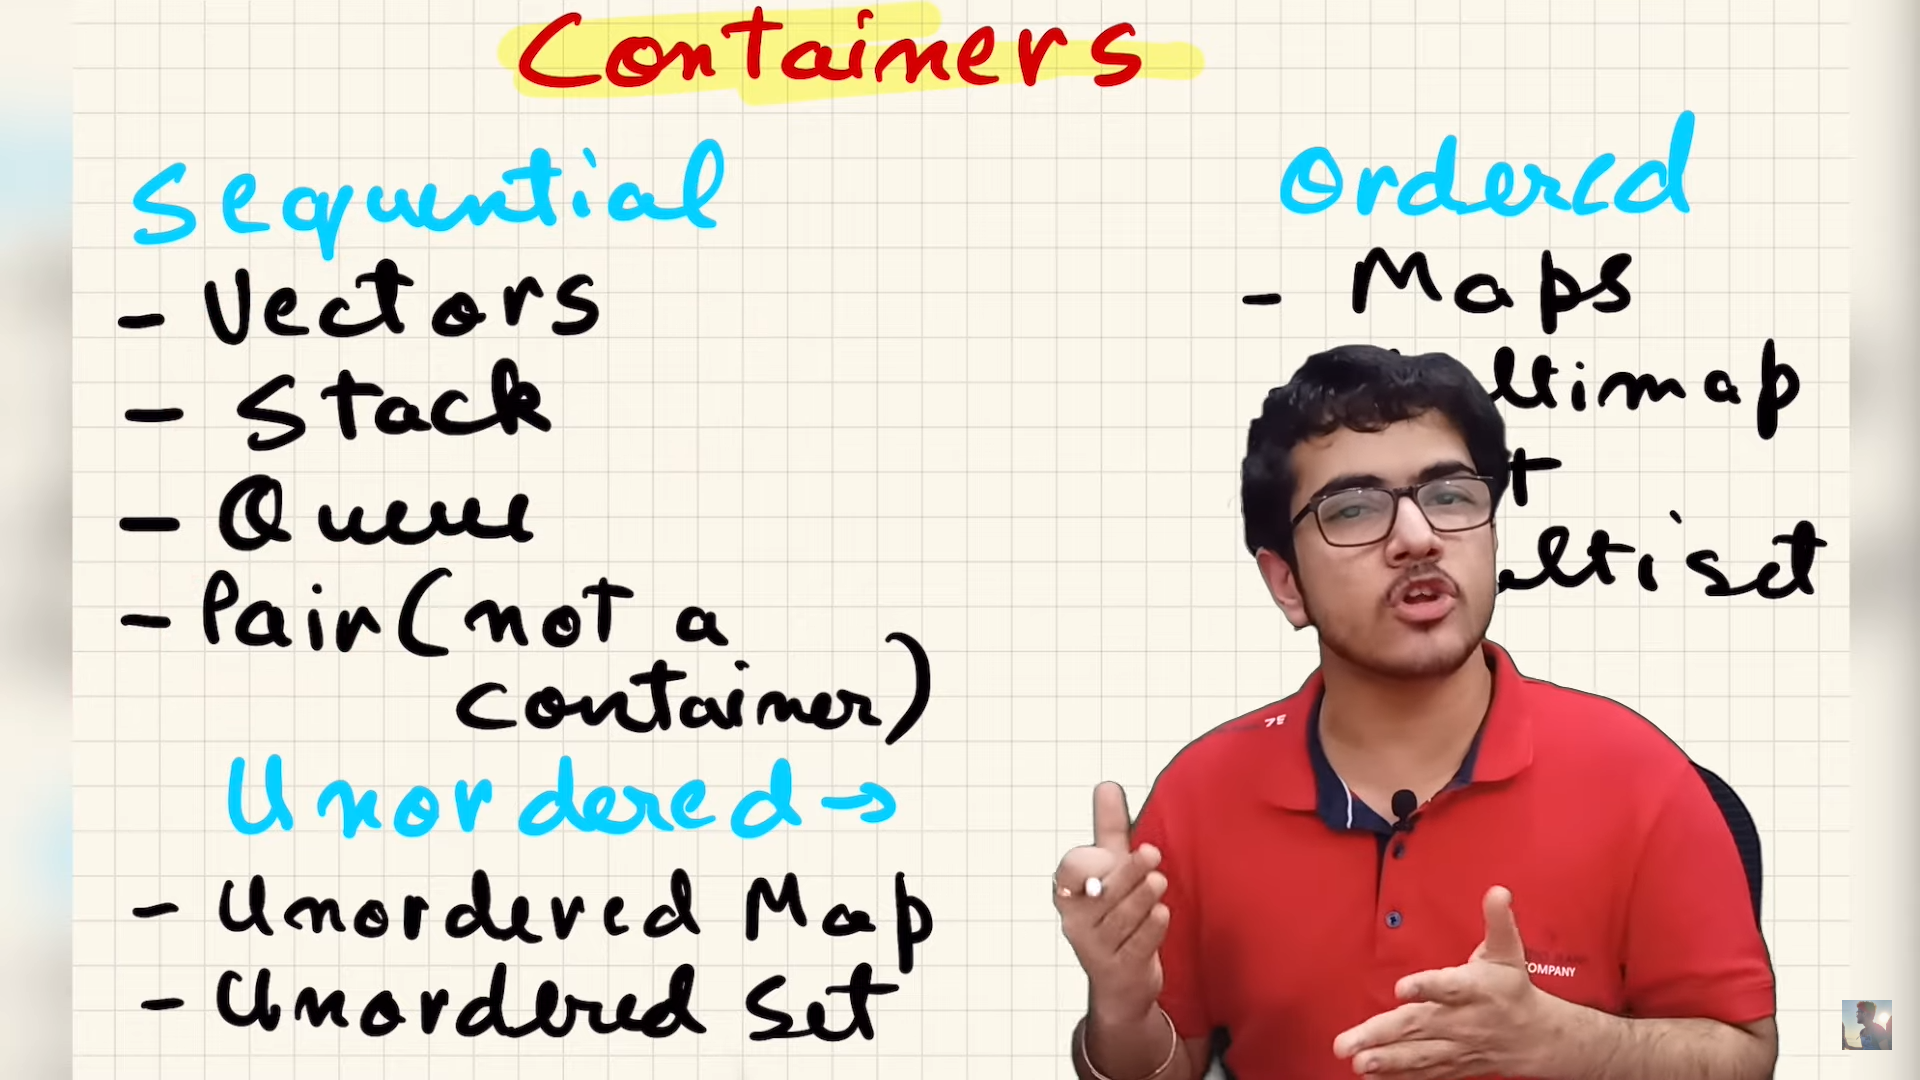 Containers
Sequential
- Vectors
- Stack
- Queue
- Pair (not a
container)
Unordered →
- Unordered Map
- Unordered Set
Ordered
- Maps
ltimap
t
ltiset
COMPANY